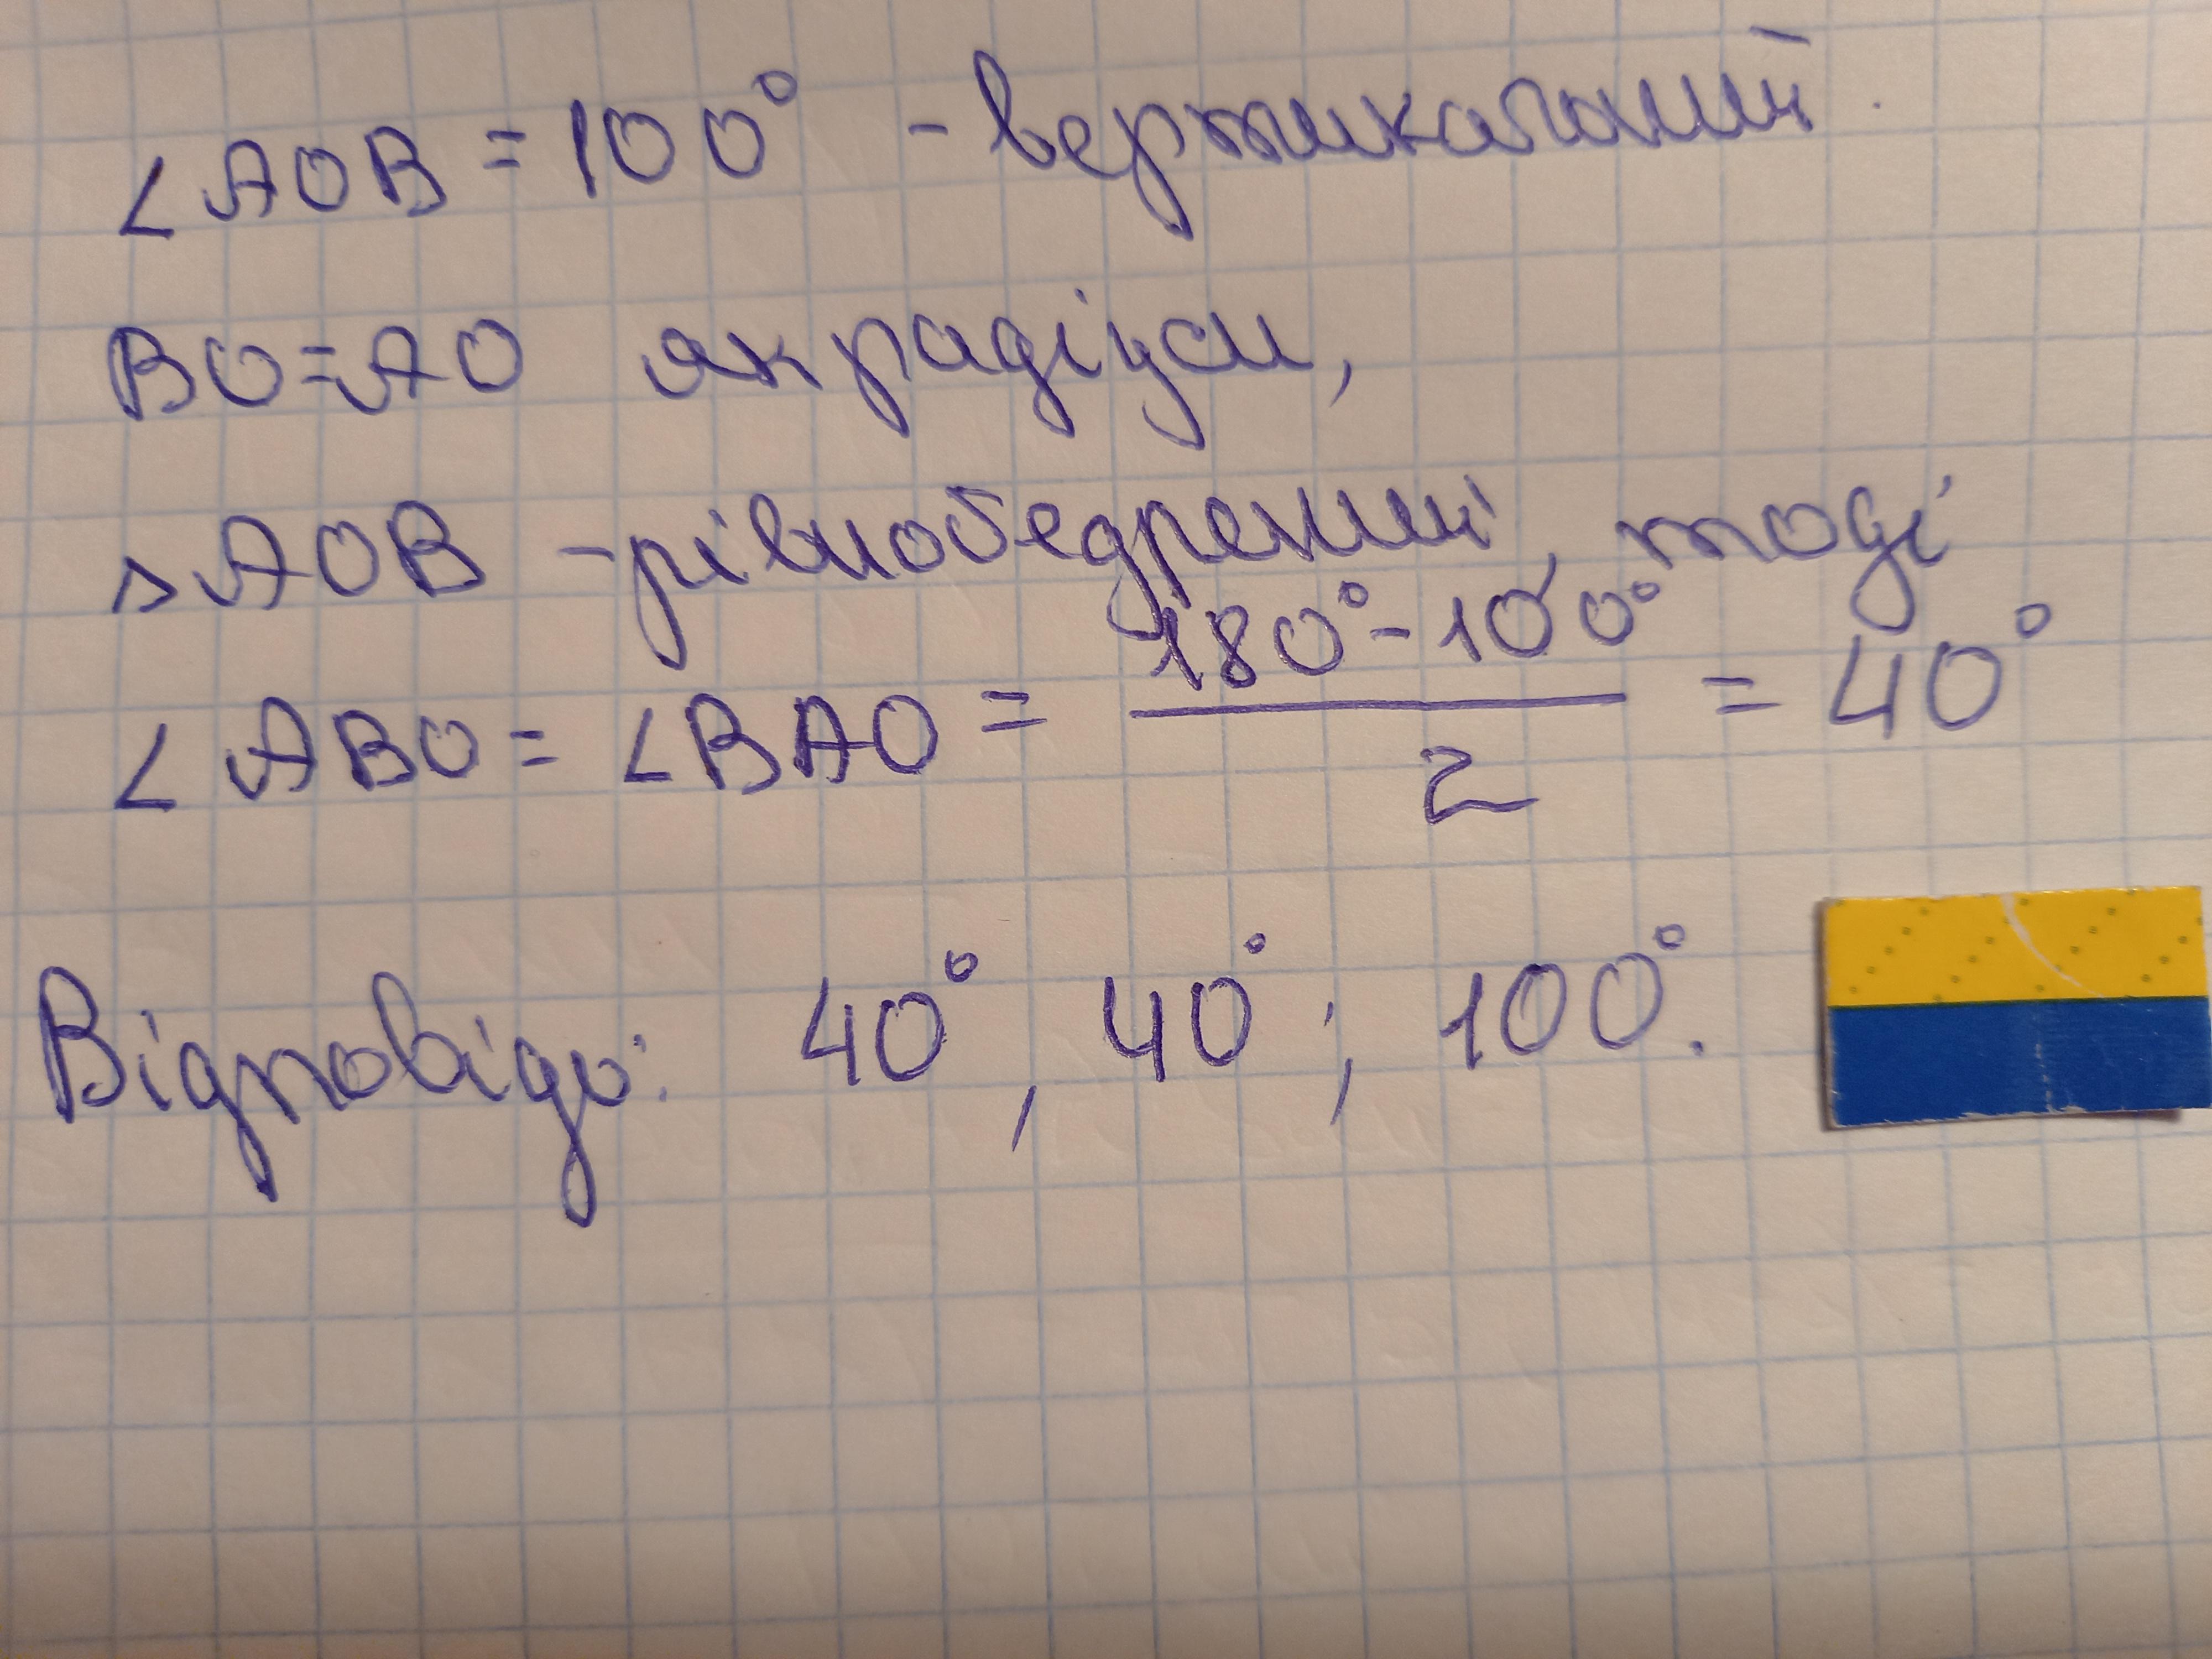 ∠AOB = 100° - вертикальний.
BO=AO як радіуси,
△AOB - рівнобедрений, тоді
∠ABO = ∠BAO = (180° - 100°)/2 = 40°
Відповідь: 40°, 40°; 100°.